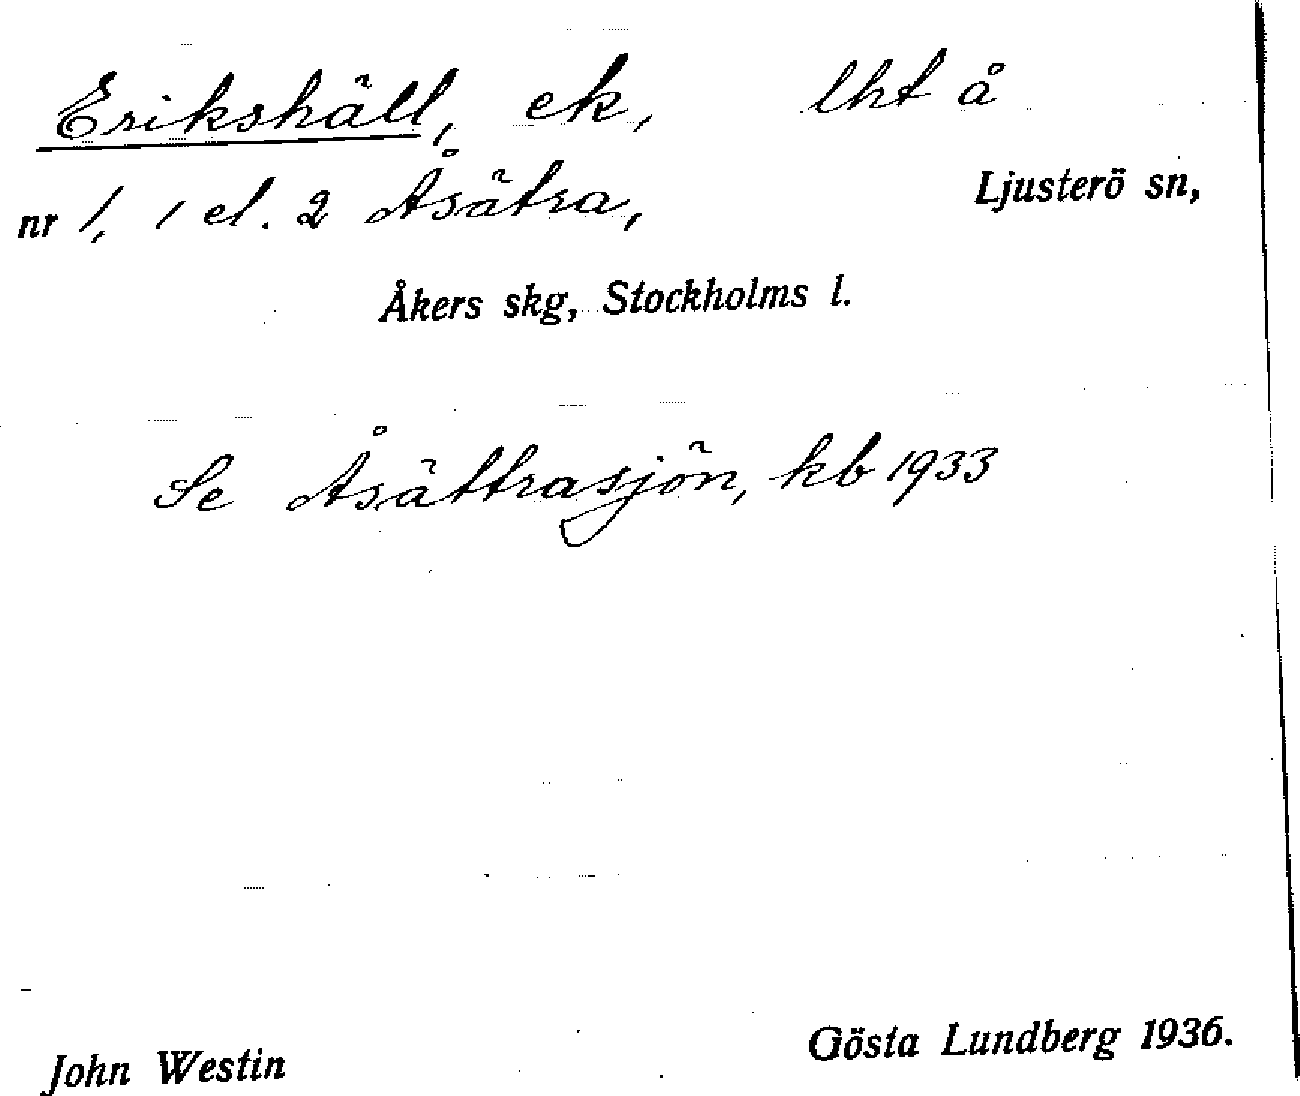 Erikshäll, ek, lht å
nr 1, 1 el. 2 Åsätra, Ljusterö sn,
Åkers skg, Stockholms l.
Se Åsättrasjön, kb 1933
John Westin Gösta Lundberg 1936.